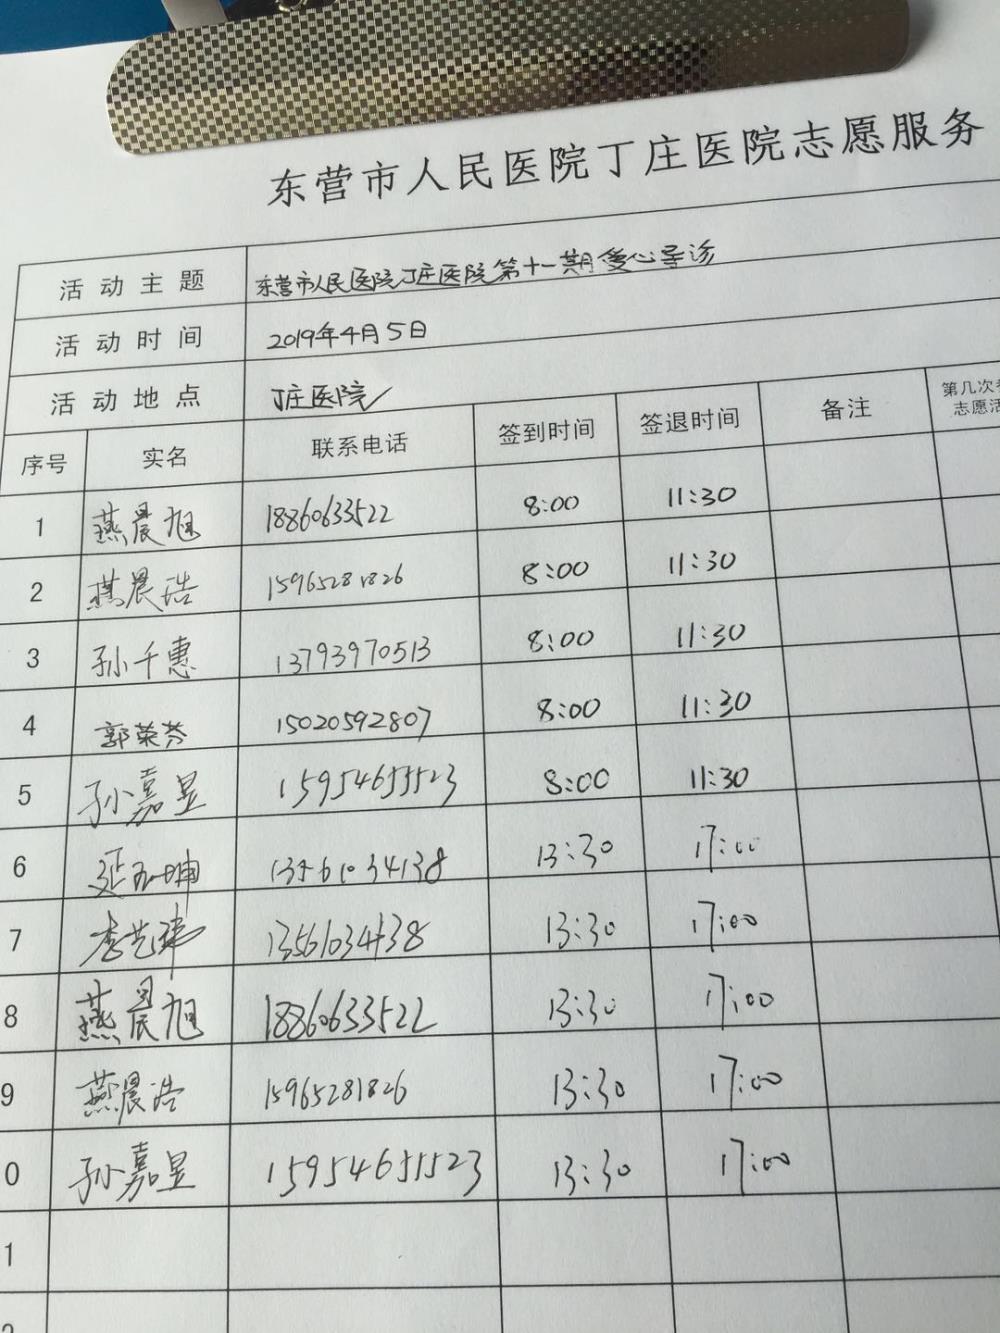 东营市人民医院丁庄医院志愿服务
活动主题 东营市人民医院丁庄医院第十一期爱心导诊
活动时间 2019年4月5日
活动地点 丁庄医院
序号 实名 联系电话 签到时间 签退时间 备注 第几次 志愿活
1 燕晨旭 18860633522 8:00 11:30
2 燕晨浩 15965281826 8:00 11:30
3 孙千惠 13793970513 8:00 11:30
4 郭荣芬 15020592807 8:00 11:30
5 孙嘉昱 15954655523 8:00 11:30
6 13561034138 13:30 17:00
7 李艺玮 13561034138 13:30 17:00
8 燕晨旭 18860633522 13:30 17:00
9 燕晨浩 15965281826 13:30 17:00
0 孙嘉昱 15954651523 13:30 17:00
1